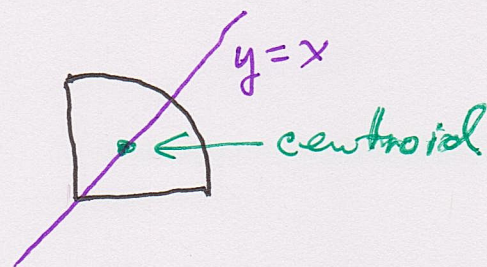 y = x
centroid